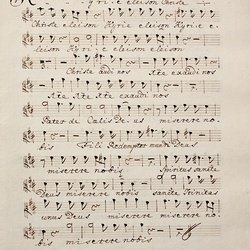 Kyrie eleison Christe
eleison Kyrie eleison Kyrie e
eleison Kyrie eleison eleison
Christe audi nos Xte exaudi nos
Xte Xte exaudi nos
Pater de Cælis Deus miserere no
bis Fili Redemptor mundi Deus
miserere nobis Spiritus sancte
Deus miserere nobis sancta Trinitas
unus Deus miserere miserere no
bis miserere nobis